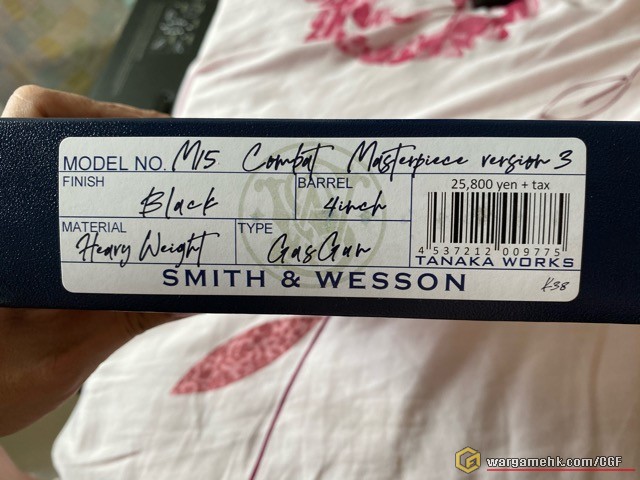 MODEL NO. M15 Combat Masterpiece version 3
FINISH Black
BARREL 4inch
25,800 yen + tax
MATERIAL Heavy Weight
TYPE GasGun
4 537212 009775
TANAKA WORKS
SMITH & WESSON
K38
wargamehk.com/CGF